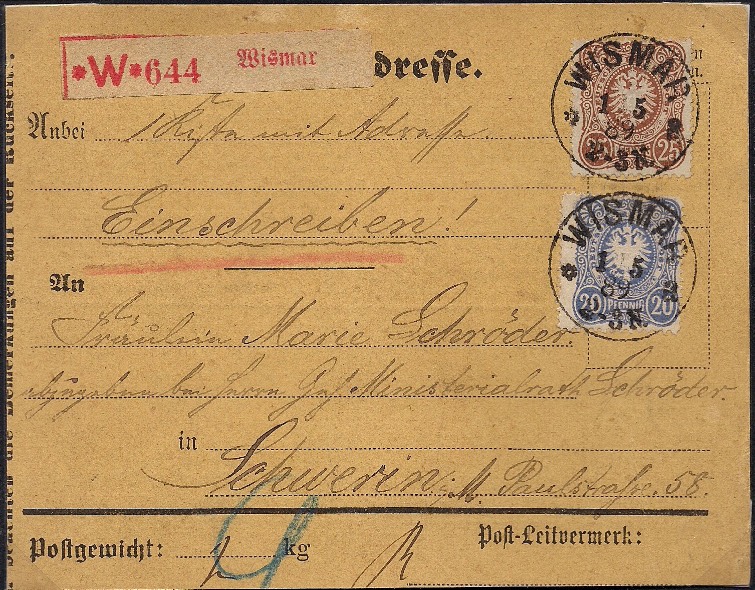 *W*644 Wismar
dresse.
Anbei 1 Kiste mit Adresse
Einschreiben!
An
Fräulein Marie Schröder.
abzugeben bei Herrn Geh Ministerialrath Schröder.
in
Schwerin i. M. Paulstraße. 58.
Postgewicht: kg
R
Post-Leitvermerk:
WISMAR
1 5
89
2-3N.
25 25
WISMAR
1 5
89
2-3N.
20 PFENNIG 20